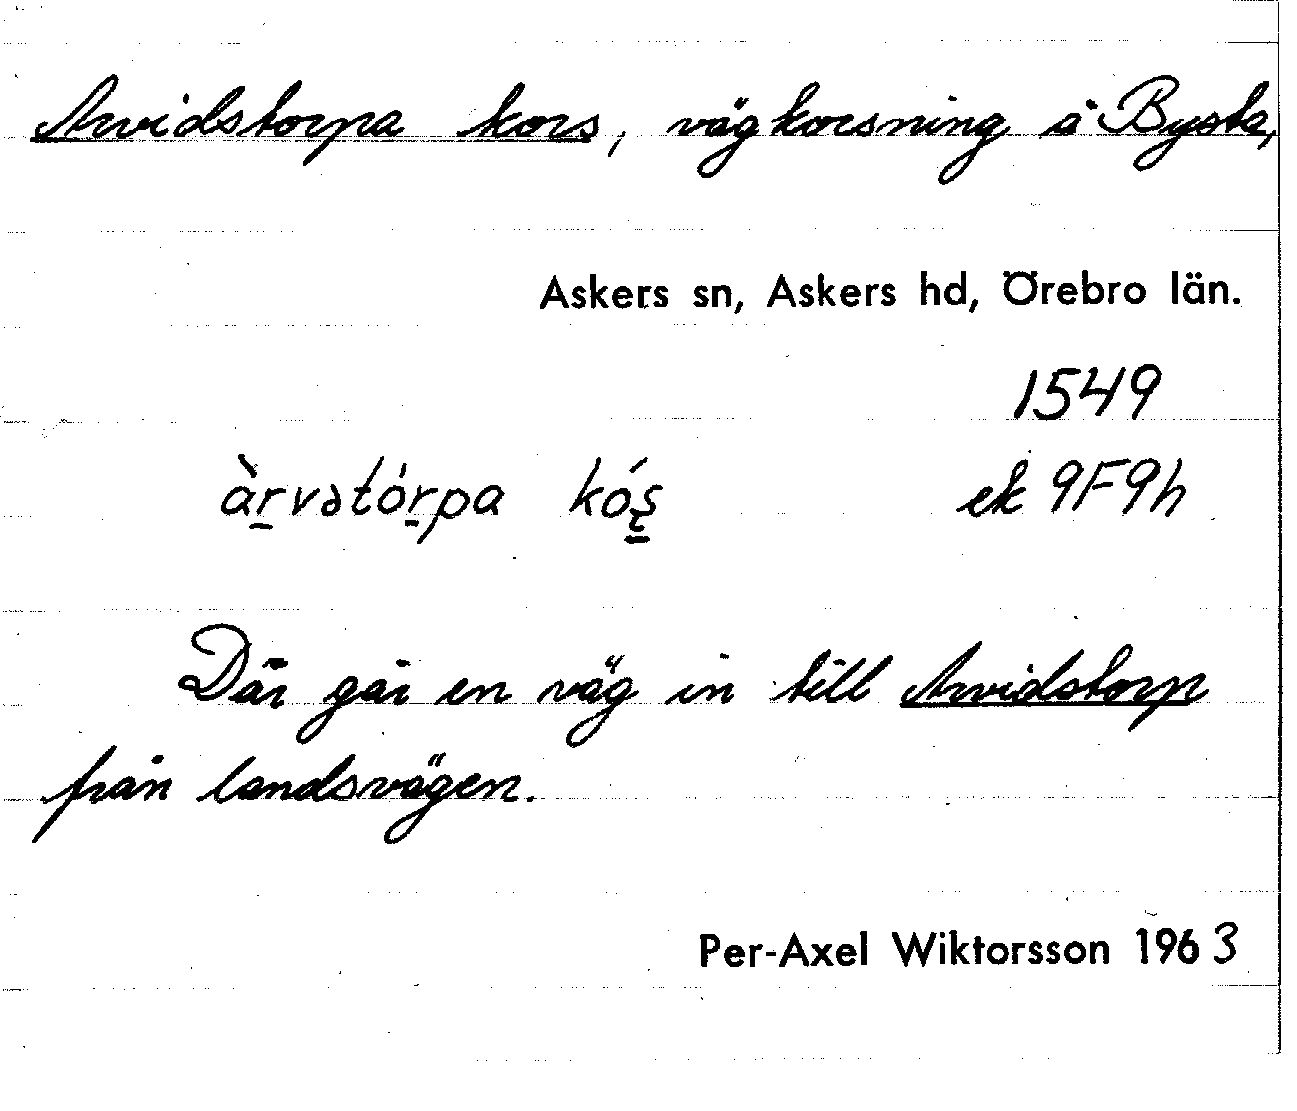 Arvidstorpa kors, vägkorsning å Bysta,
Askers sn, Askers hd, Örebro län.
1549
àr̲vətór̲pa kós̲ ek 9F9h
Där går en väg in till Arvidstorp
från landsvägen.
Per-Axel Wiktorsson 1963